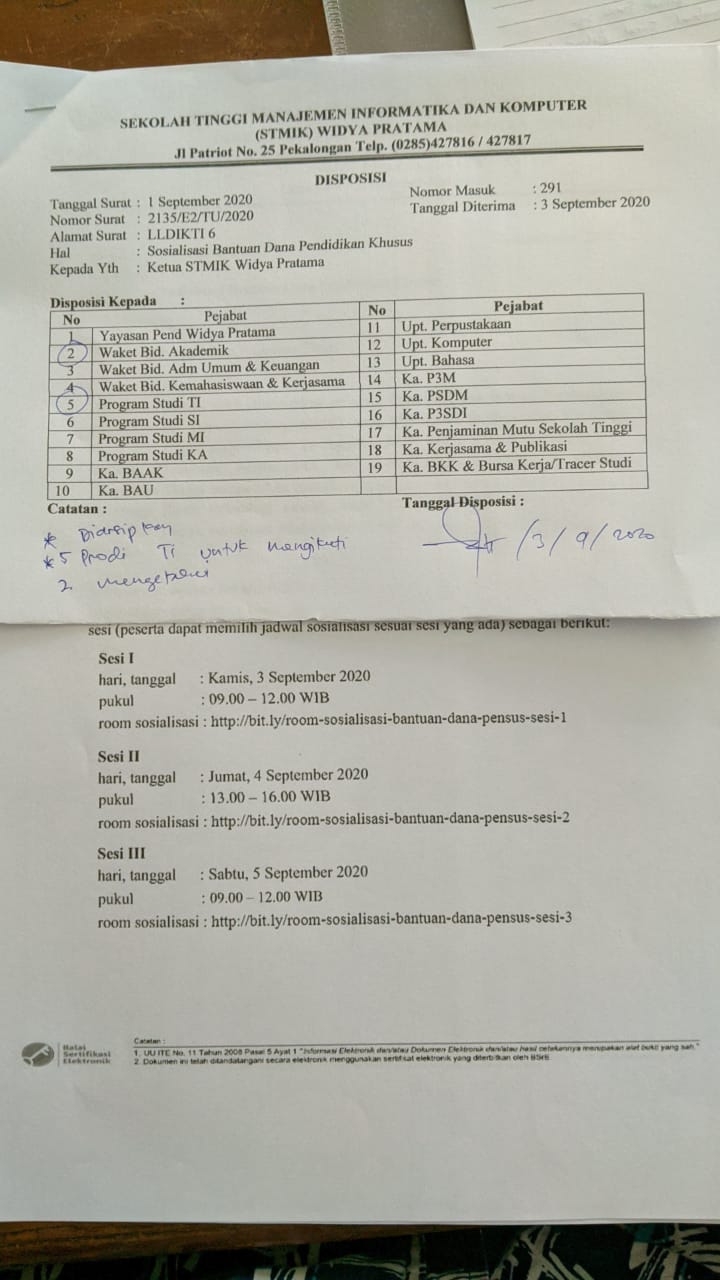 SEKOLAH TINGGI MANAJEMEN INFORMATIKA DAN KOMPUTER
(STMIK) WIDYA PRATAMA
Jl Patriot No. 25 Pekalongan Telp. (0285)427816 / 427817
DISPOSISI
Tanggal Surat : 1 September 2020
Nomor Surat : 2135/E2/TU/2020
Alamat Surat : LLDIKTI 6
Hal : Sosialisasi Bantuan Dana Pendidikan Khusus
Kepada Yth : Ketua STMIK Widya Pratama
Nomor Masuk : 291
Tanggal Diterima : 3 September 2020
Disposisi Kepada :
No Pejabat
1 Yayasan Pend Widya Pratama
2 Waket Bid. Akademik
3 Waket Bid. Adm Umum & Keuangan
4 Waket Bid. Kemahasiswaan & Kerjasama
5 Program Studi TI
6 Program Studi SI
7 Program Studi MI
8 Program Studi KA
9 Ka. BAAK
10 Ka. BAU
No Pejabat
11 Upt. Perpustakaan
12 Upt. Komputer
13 Upt. Bahasa
14 Ka. P3M
15 Ka. PSDM
16 Ka. P3SDI
17 Ka. Penjaminan Mutu Sekolah Tinggi
18 Ka. Kerjasama & Publikasi
19 Ka. BKK & Bursa Kerja/Tracer Studi
Catatan :
* Diarsipkan
* 5 Prodi TI untuk mengikuti
2. mengetahui
Tanggal Disposisi :
/3/9/2020
sesi (peserta dapat memilih jadwal sosialisasi sesuai sesi yang ada) sebagai berikut:
Sesi I
hari, tanggal : Kamis, 3 September 2020
pukul : 09.00 – 12.00 WIB
room sosialisasi : http://bit.ly/room-sosialisasi-bantuan-dana-pensus-sesi-1
Sesi II
hari, tanggal : Jumat, 4 September 2020
pukul : 13.00 – 16.00 WIB
room sosialisasi : http://bit.ly/room-sosialisasi-bantuan-dana-pensus-sesi-2
Sesi III
hari, tanggal : Sabtu, 5 September 2020
pukul : 09.00 – 12.00 WIB
room sosialisasi : http://bit.ly/room-sosialisasi-bantuan-dana-pensus-sesi-3
Balai
Sertifikasi
Elektronik
Catatan :
1. UU ITE No. 11 Tahun 2008 Pasal 5 Ayat 1 "Informasi Elektronik dan/atau Dokumen Elektronik dan/atau hasil cetakannya merupakan alat bukti yang sah."
2. Dokumen ini telah ditandatangani secara elektronik menggunakan sertifikat elektronik yang diterbitkan oleh BSrE